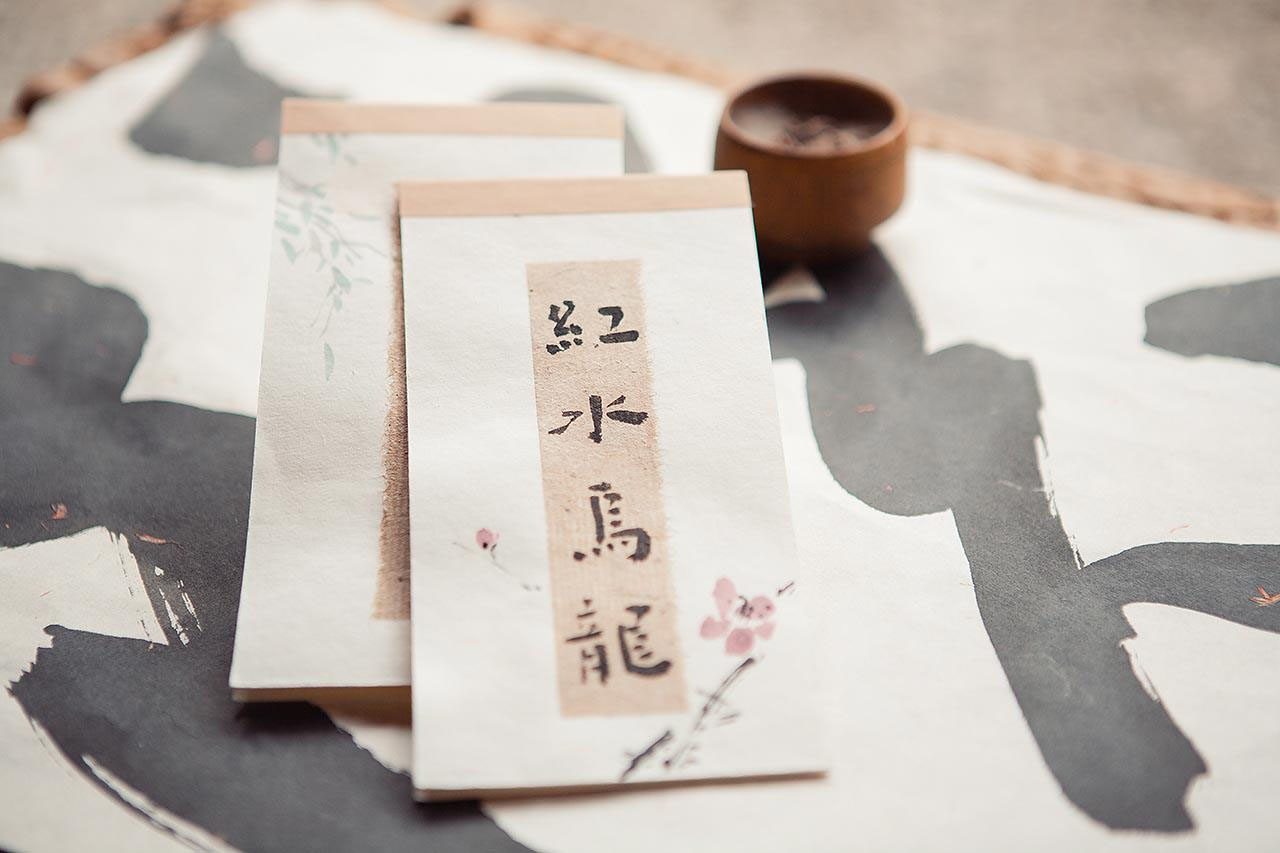 紅水烏龍